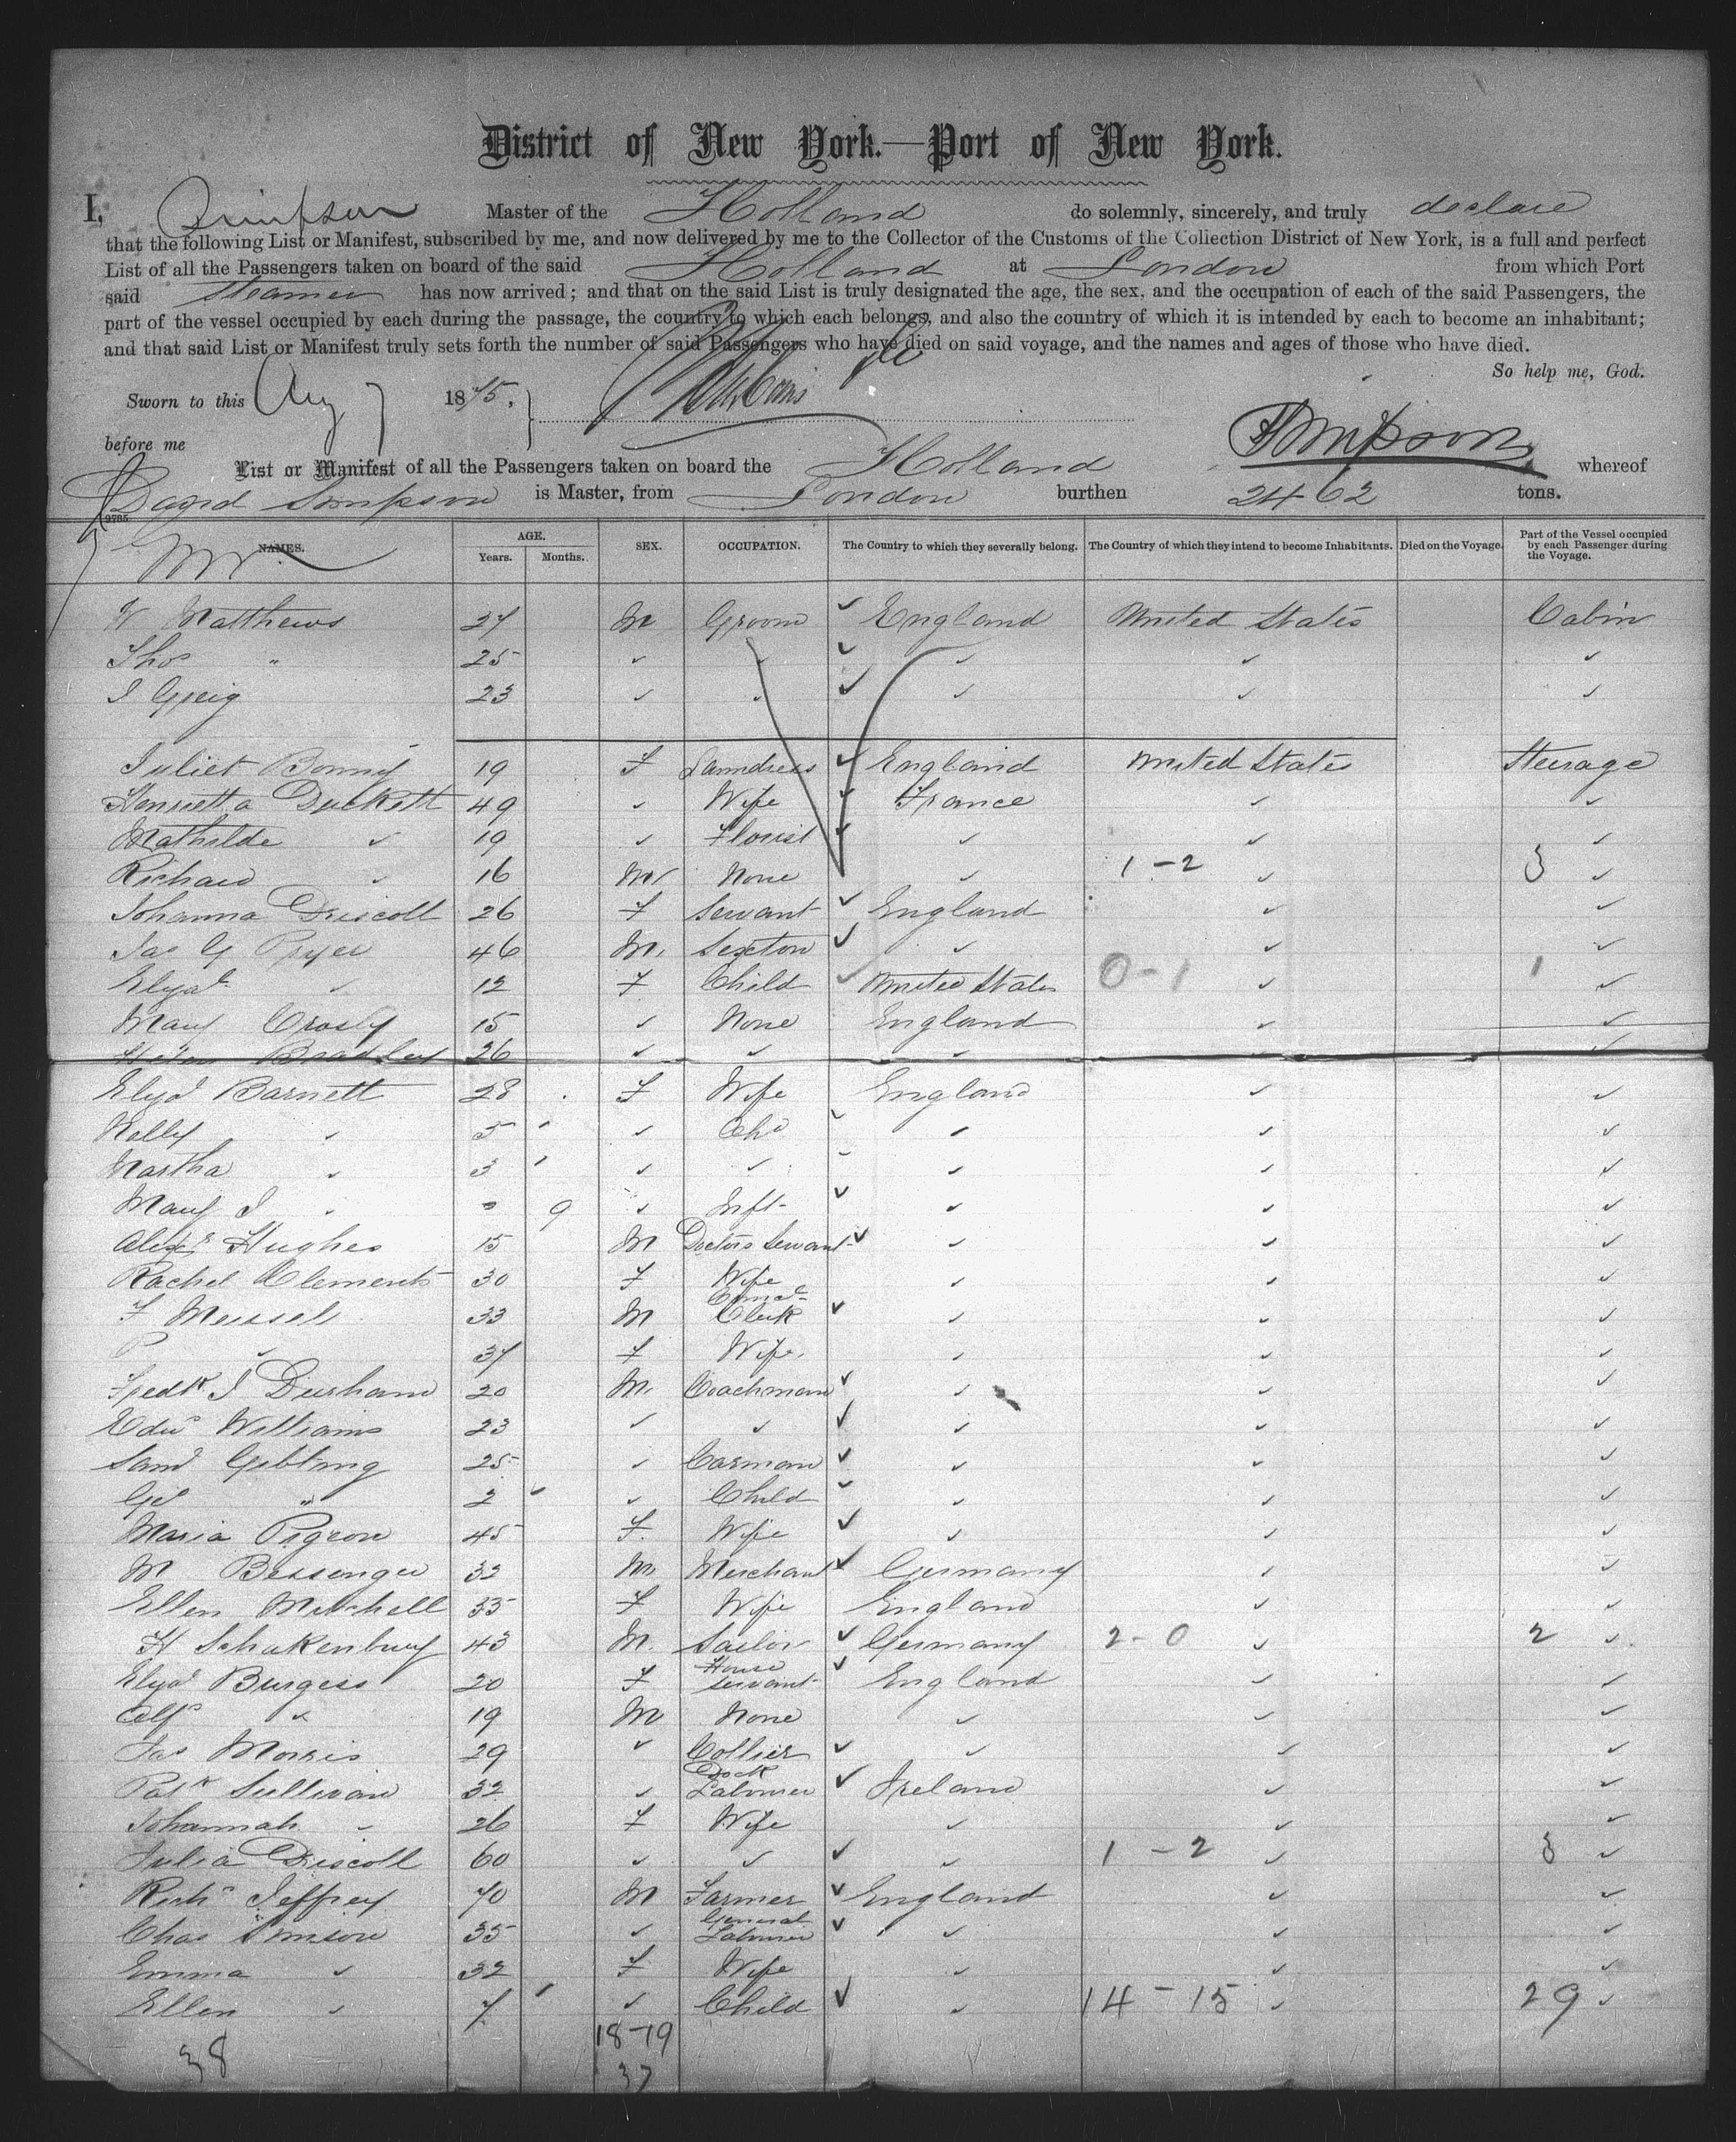 District of New York.—Port of New York.
I, Simpson Master of the Holland do solemnly, sincerely, and truly declare
that the following List or Manifest, subscribed by me, and now delivered by me to the Collector of the Customs of the Collection District of New York, is a full and perfect
List of all the Passengers taken on board of the said Holland at London from which Port
said Steamer has now arrived; and that on the said List is truly designated the age, the sex, and the occupation of each of the said Passengers, the
part of the vessel occupied by each during the passage, the country to which each belongs, and also the country of which it is intended by each to become an inhabitant;
and that said List or Manifest truly sets forth the number of said Passengers who have died on said voyage, and the names and ages of those who have died.
So help me, God.
Sworn to this Aug 7 1875,
before me Simpson
List or Manifest of all the Passengers taken on board the Holland whereof
David Simpson is Master, from London burthen 2462 tons.
9795
NAMES. AGE. Years. Months. SEX. OCCUPATION. The Country to which they severally belong. The Country of which they intend to become Inhabitants. Died on the Voyage. Part of the Vessel occupied by each Passenger during the Voyage.
Mr
W Matthews 27 M Groom ✓ England United States Cabin
Thos " 25 ✓ ✓ ✓ ✓ ✓ ✓
J Greig 23 ✓ ✓ ✓ ✓ ✓ ✓
Juliet Bonny 19 F Laundress ✓ England United States Steerage
Henrietta Duckett 49 ✓ Wife ✓ France ✓ ✓
Mathilde ✓ 19 ✓ Florist ✓ ✓ ✓ ✓
Richard ✓ 16 M None ✓ 1-2 ✓ 3 ✓
Johanna Driscoll 26 F Servant ✓ England ✓ ✓
Jas G Pryer 46 M. Sexton ✓ ✓ ✓ ✓
Elizat ✓ 12 F Child ✓ United States 0-1 ✓ 1 ✓
Mary Crosly 15 ✓ None England ✓ ✓
Bradley 26 ✓ ✓ ✓ ✓
Elizd Barnett 28 F Wife England ✓ ✓
Nelly ✓ 5 ✓ Chd ✓ ✓ ✓ ✓
Martha ✓ 3 ✓ ✓ ✓ ✓ ✓
Mary J ✓ 9 ✓ Inft ✓ ✓ ✓ ✓
Alexr Hughes 15 M Doctors Servant ✓ ✓ ✓ ✓
Rachel Clements 30 F Wife ✓ ✓ ✓
F Meissel 33 M Clerk ✓ ✓ ✓ ✓
✓ 37 F Wife. ✓ ✓ ✓
Fredk J Durham 20 M. Coachman ✓ ✓ ✓ ✓
Edwd Williams 23 ✓ ✓ ✓ ✓ ✓ ✓
Saml Gibling 25 ✓ Carman ✓ ✓ ✓ ✓
Geo " 2 ✓ Child ✓ ✓ ✓ ✓
Maria Pigeon 45 F. Wife ✓ ✓ ✓ ✓
M Bessenger 32 M Merchant ✓ Germany ✓ ✓
Ellen Mitchell 35 F Wife England ✓ ✓
H Schukenbury 43 M. Sailor ✓ Germany 2-0 ✓ 2 ✓
Elizd Burgess 20 F House Servant ✓ England ✓ ✓
Alfd ✓ 19 M None ✓ ✓ ✓
Jas Morris 29 ✓ Collier ✓ ✓ ✓ ✓
Patk Sullivan 32 ✓ Dock Labourer ✓ Ireland ✓ ✓
Johannah ✓ 26 F Wife ✓ ✓ ✓
Julia Driscoll 60 ✓ ✓ ✓ ✓ 1-2 ✓ 3 ✓
Richd Jeffrey 70 M Farmer ✓ England ✓ ✓
Chas Simson 35 ✓ General Labourer ✓ ✓ ✓ ✓
Emma ✓ 32 F Wife ✓ ✓ ✓
Ellen ✓ 7 ✓ Child ✓ ✓ 14-15 ✓ 29 ✓
38 18-19
37